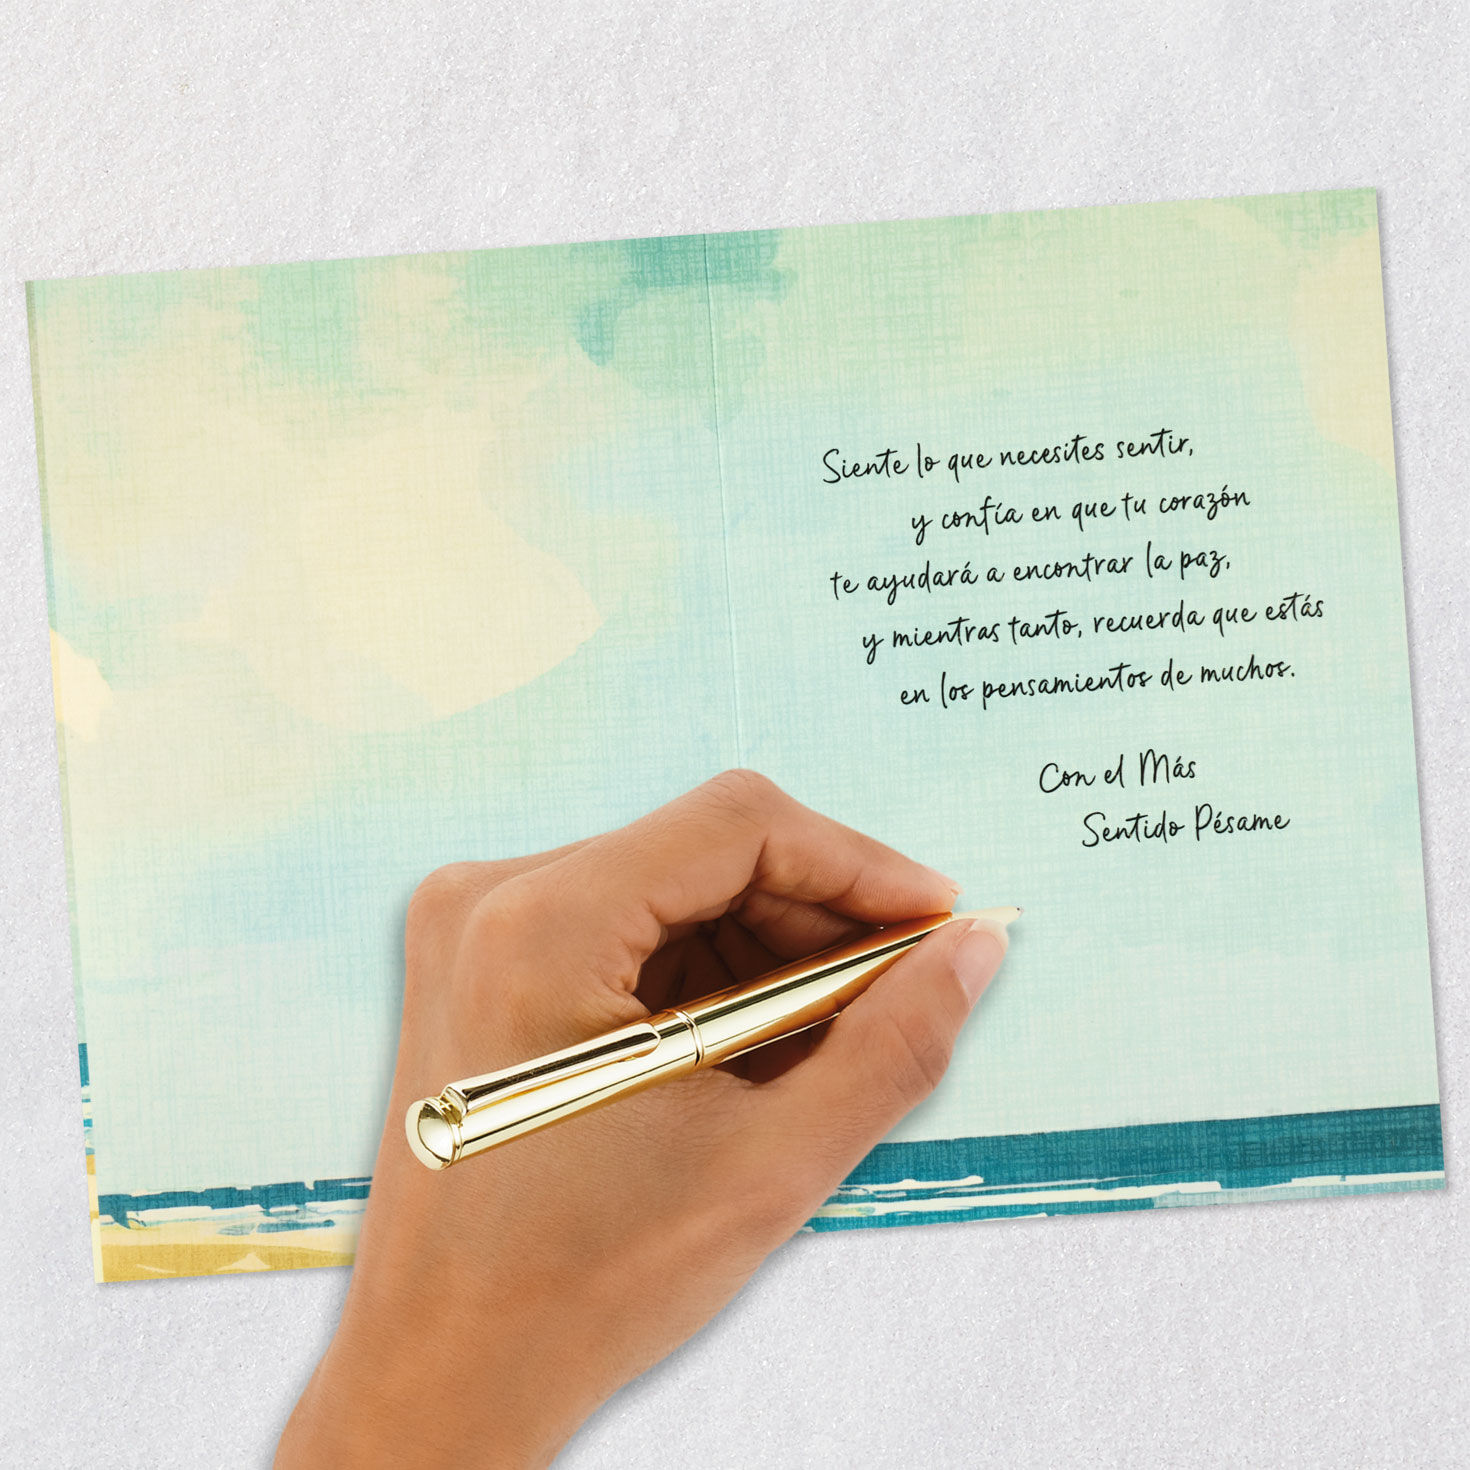 Siente lo que necesites sentir,
y confía en que tu corazón
te ayudará a encontrar la paz,
y mientras tanto, recuerda que estás
en los pensamientos de muchos.
Con el Más
Sentido Pésame